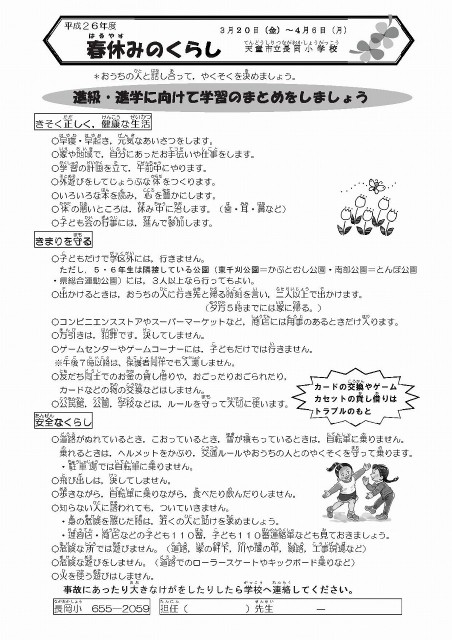 平成26年度
春休みのくらし
3月20日（金）～4月6日（月）
天童市立長岡小学校
＊おうちの人と話し合って，やくそくを決めましょう。
進級・進学に向けて学習のまとめをしましょう
きそく正しく，健康な生活
○早寝・早起き，元気なあいさつをします。
○家や地域で，自分にあったお手伝いや仕事をします。
○学習の計画を立て，午前中にやります。
○外遊びをしてじょうぶな体をつくります。
○いろいろな本を読み，心を豊かにします。
○体の悪いところは，休み中に治します。（歯・耳・鼻など）
○子ども会の行事には，進んで参加します。
きまりを守る
○子どもだけで学区外には，行きません。
ただし，5・6年生は隣接している公園（東千刈公園＝かぶとむし公園・南部公園＝とんぼ公園
・県総合運動公園）には，3人以上なら行ってもよい。
○出かけるときは，おうちの人に行き先と帰る時刻を言い，二人以上で出かけます。
（夕方5時までには家に帰る。）
○コンビニエンスストアやスーパーマーケットなど，商店には用事のあるときだけ入ります。
○万引きは，犯罪です。決してしません。
○ゲームセンターやゲームコーナーには，子どもだけでは行きません。
※午後7時以降は，保護者同伴でも入場しません。
○友だち同士でのお金の貸し借りや，おごったりおごられたり，
カードなどの物の交換などはしません。
○公民館，公園，学校などは，ルールを守って大切に使います。
カードの交換やゲーム
カセットの貸し借りは
トラブルのもと
安全なくらし
○道路がぬれているとき，こおっているとき，雪が積もっているときは，自転車に乗りません。
乗れるときは，ヘルメットをかぶり，交通ルールやおうちの人とのやくそくを守って乗ります。
・駐車場では自転車に乗りません。
○飛び出しは，決してしません。
○歩きながら，自転車に乗りながら，食べたり飲んだりしません。
○知らない人に誘われても，ついていきません。
・身の危険を感じた時は，近くの人に助けを求めましょう。
・理容店・商店などの子ども110番，子ども110番連絡車なども見ておきましょう。
○危険な所では遊びません。（道路，家の軒下，川や堰の中，線路，工事現場など）
○危険な遊びをしません。（道路でのローラースケートやキックボード乗りなど）
○火を使う遊びはしません。
事故にあったり大きなけがをしたりしたら学校へ連絡してください。
長岡小 655－2059 担任（ ）先生 －